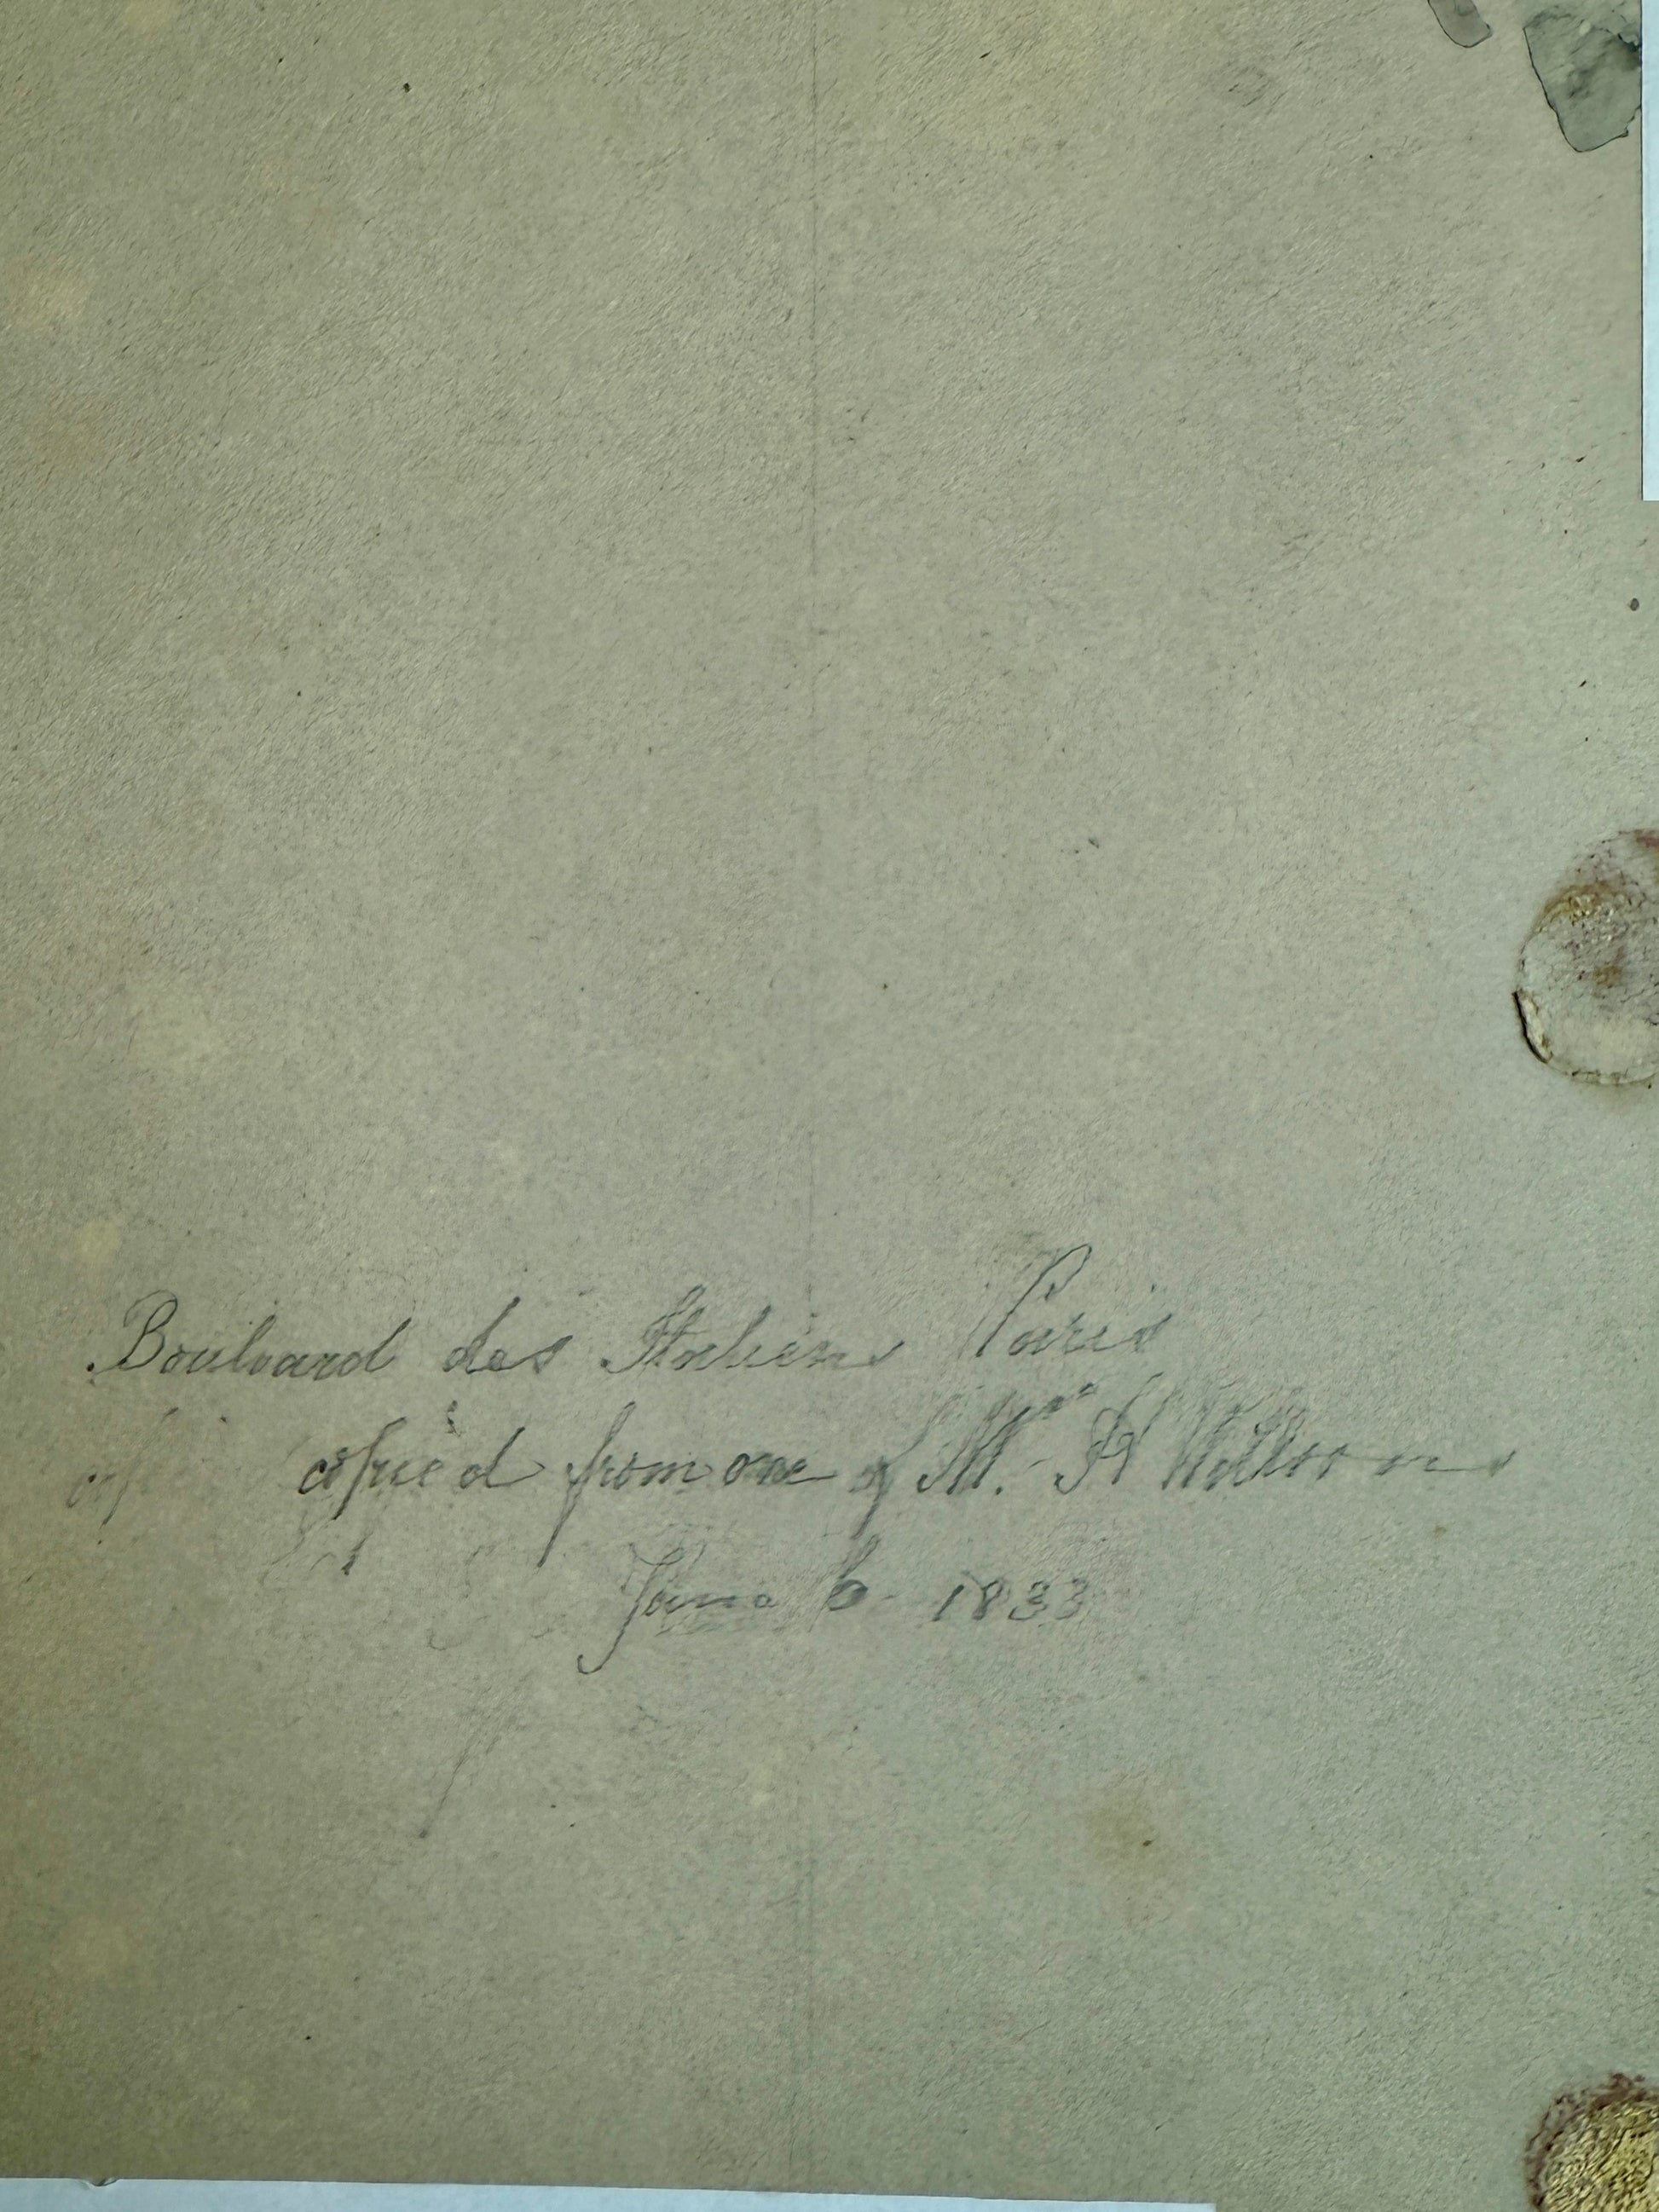 Boulvard des Italiens Paris
copied from one of Mr. H Willsons
June 6 1833